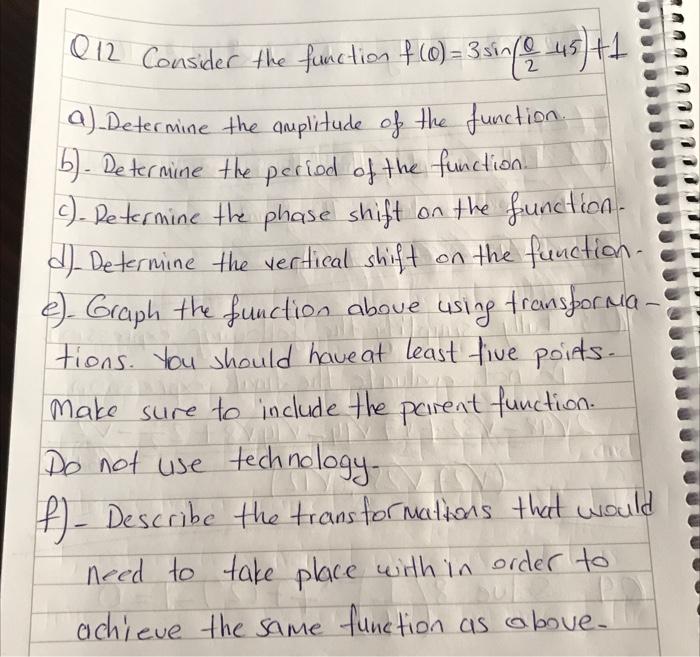 Q12 Consider the function f(θ)=3sin(θ/2-45)+1
a)-Determine the amplitude of the function.
b)-Determine the period of the function.
c)-Determine the phase shift on the function.
d)-Determine the vertical shift on the function.
e)-Graph the function above using transforma-
tions. You should have at least five points.
Make sure to include the parent function.
Do not use technology.
f)-Describe the transformations that would
need to take place with in order to
achieve the same function as above.